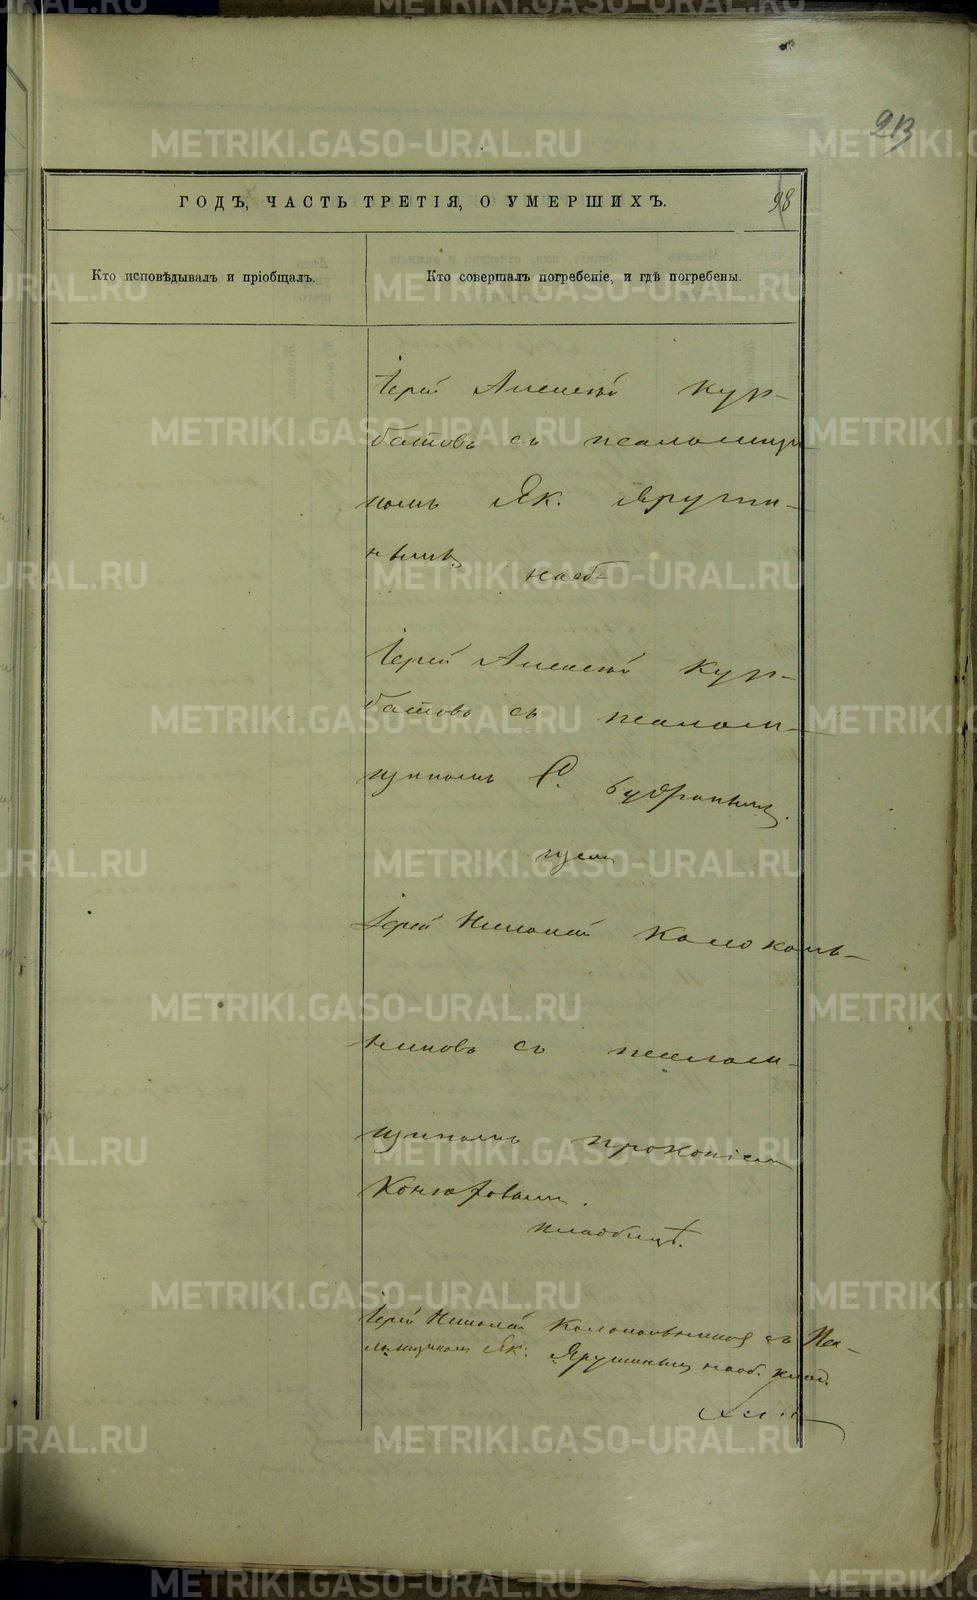 METRIKI.GASO-URAL.RU
213
ГОДЪ, ЧАСТЬ ТРЕТІЯ, О УМЕРШИХЪ.
98
Кто исповѣдывалъ и пріобщалъ.
Кто совершалъ погребеніе, и гдѣ погребены.
Іерей Алексѣй Кур-
батовъ съ псаломщи
комъ Як. Яруши-
нымъ
Іерей Алексѣй Кур-
батовъ съ псалом-
щикомъ С.
Іерей Николай Колоколь-
никовъ съ псалом-
щикомъ Прокопіем
кладбищѣ.
Іерей Николай Колокольников съ Пса-
ломщиком Як. Ярушинымъ